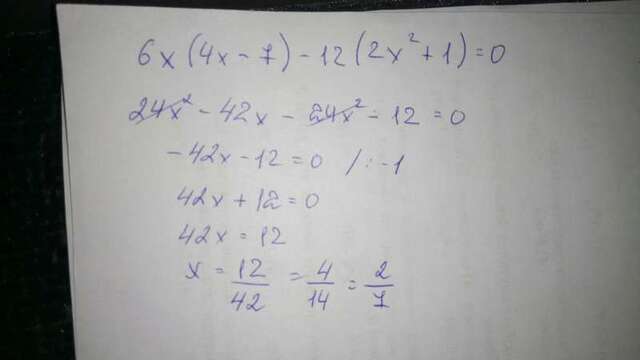 6x(4x-7)-12(2x²+1)=0
24x²-42x-24x²-12=0
-42x-12=0 /:-1
42x+12=0
42x=12
x=12/42=4/14=2/7